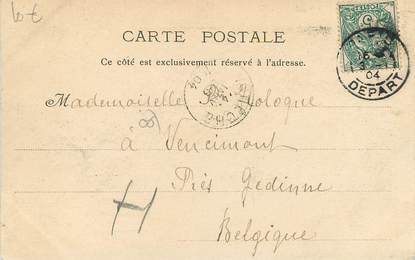 10€
CARTE POSTALE
Ce côté est exclusivement réservé à l'adresse.
Mademoiselle ologue
à Vencimont
Près Gedinne
Belgique
04
DEPART